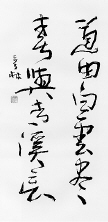 道由白雲盡
春與青溪長